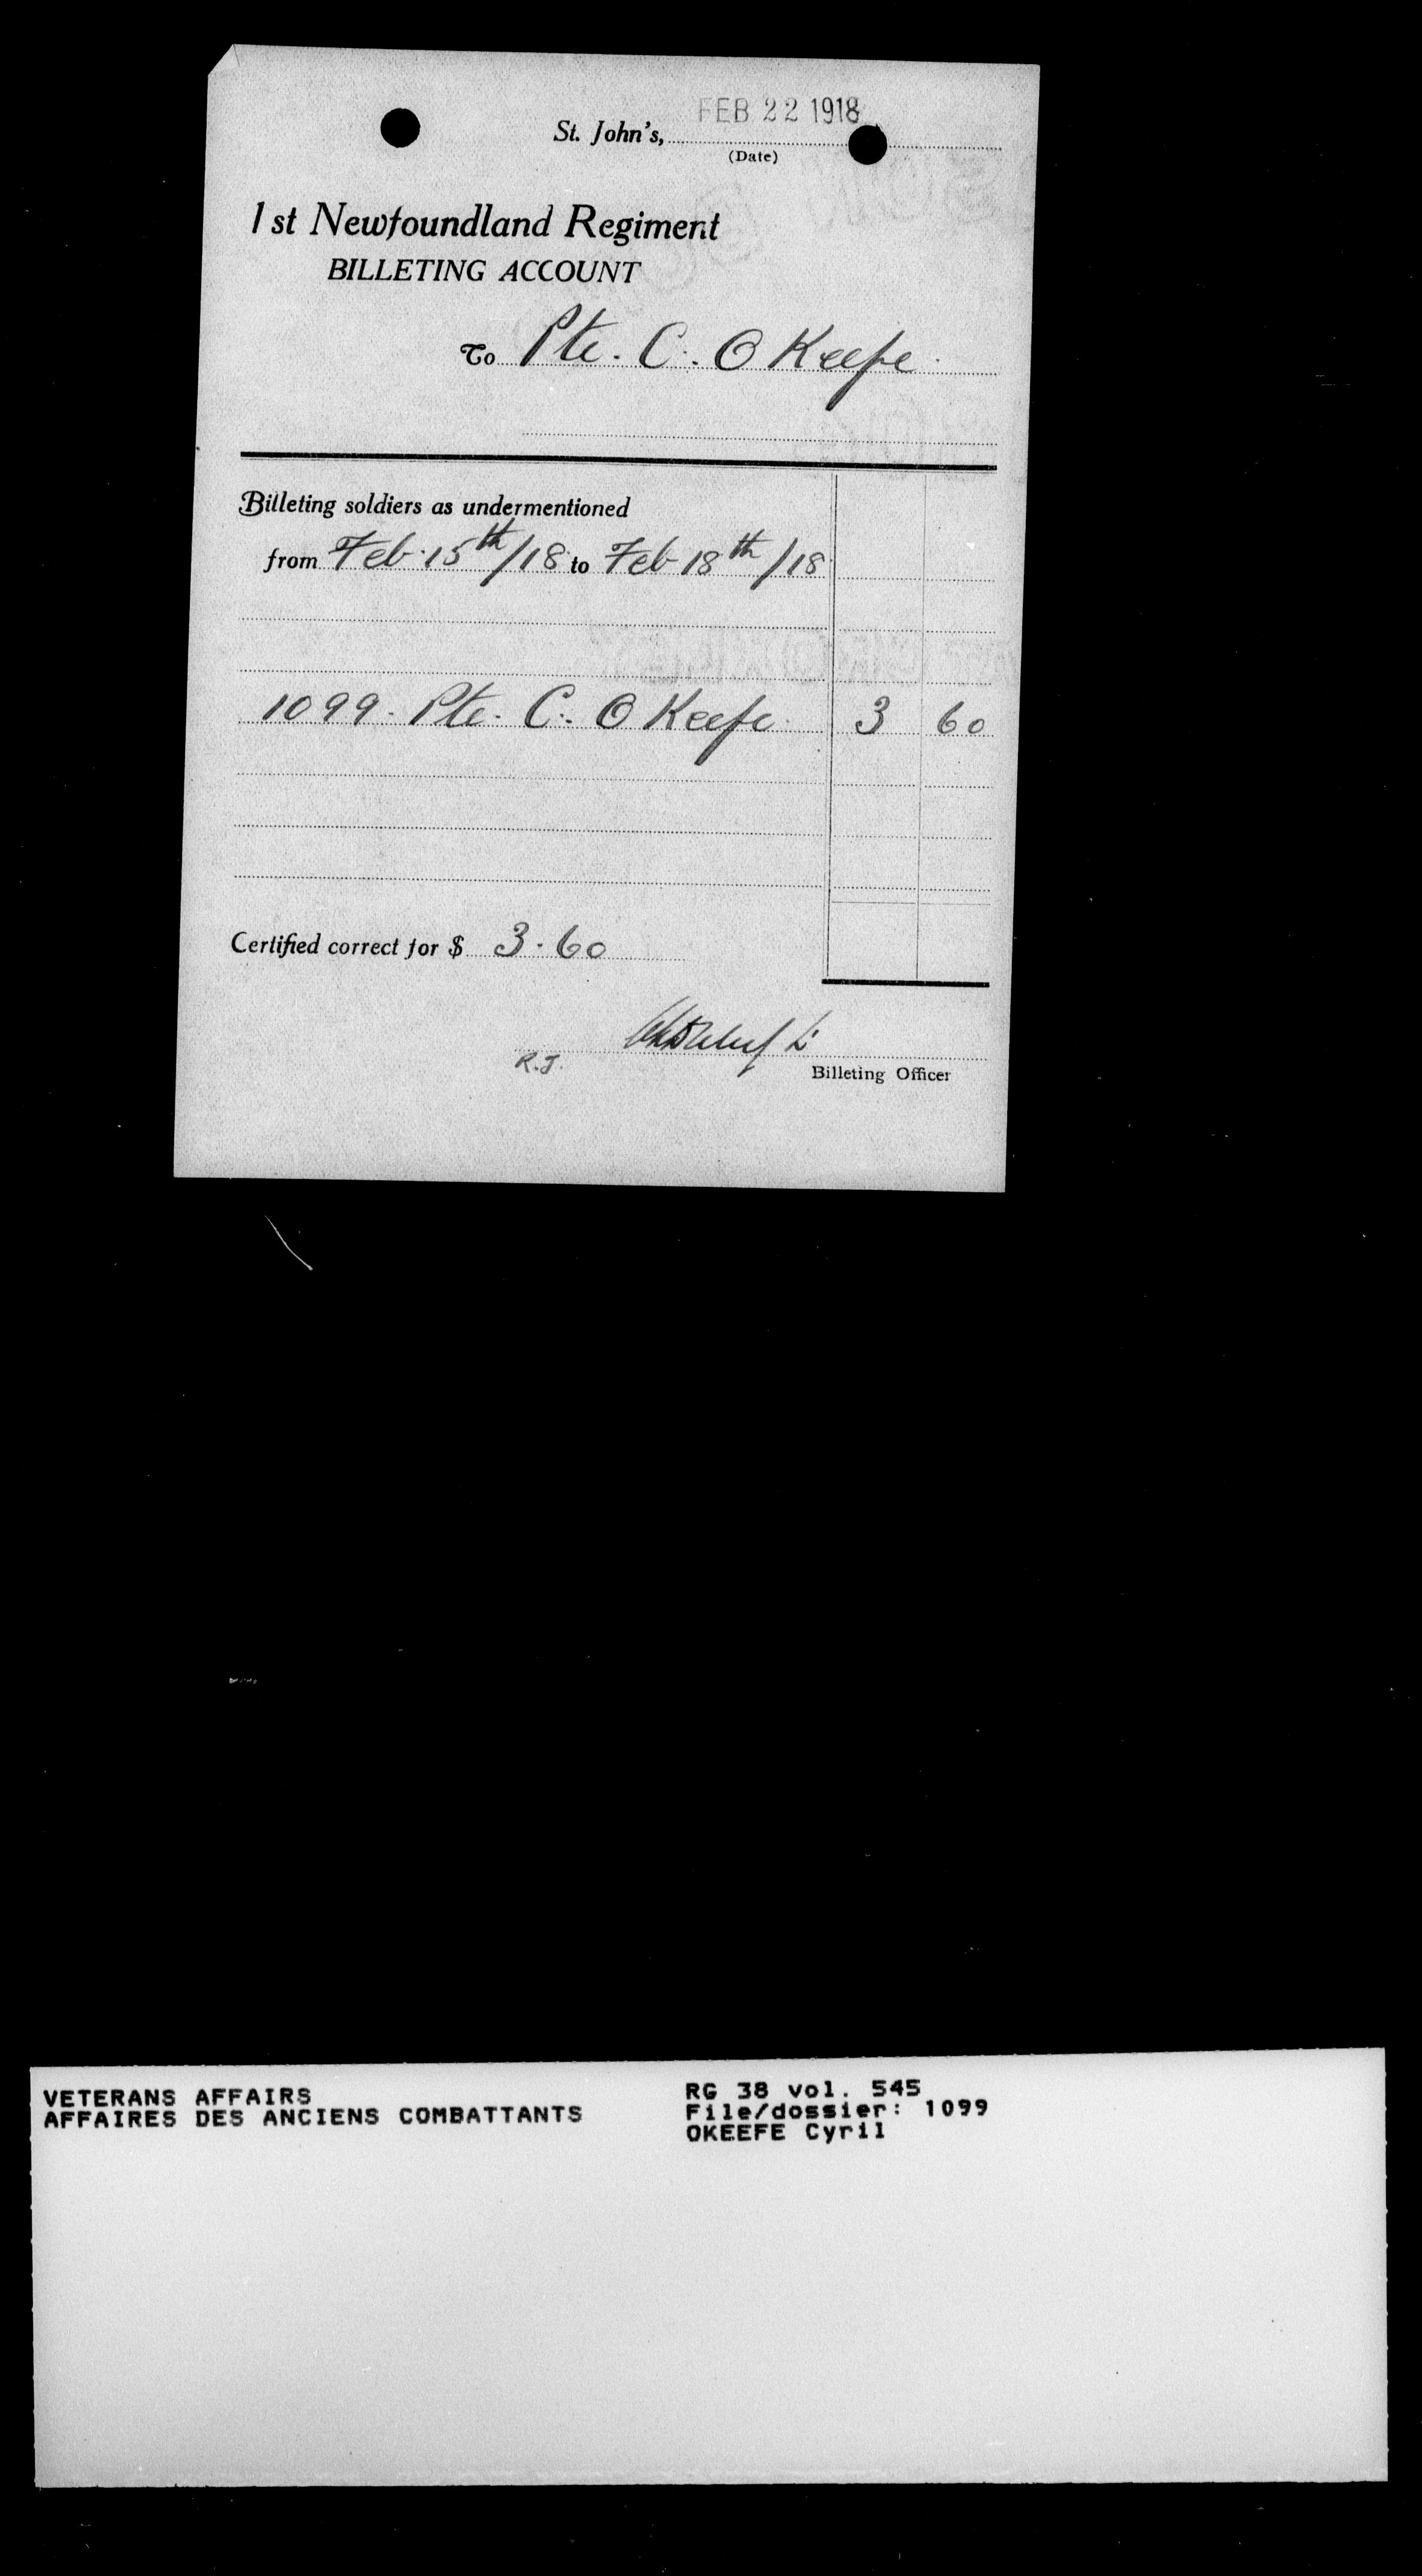 FEB 22 1918
St. John's,
(Date)
1st Newfoundland Regiment
BILLETING ACCOUNT
To Pte. C. O Keefe
Billeting soldiers as undermentioned
from Feb 15th/18 to Feb 18th/18
1099. Pte. C. O Keefe 3 60
Certified correct for $ 3.60
R.J.
Billeting Officer
VETERANS AFFAIRS
AFFAIRES DES ANCIENS COMBATTANTS
RG 38 vol. 545
File/dossier: 1099
OKEEFE Cyril